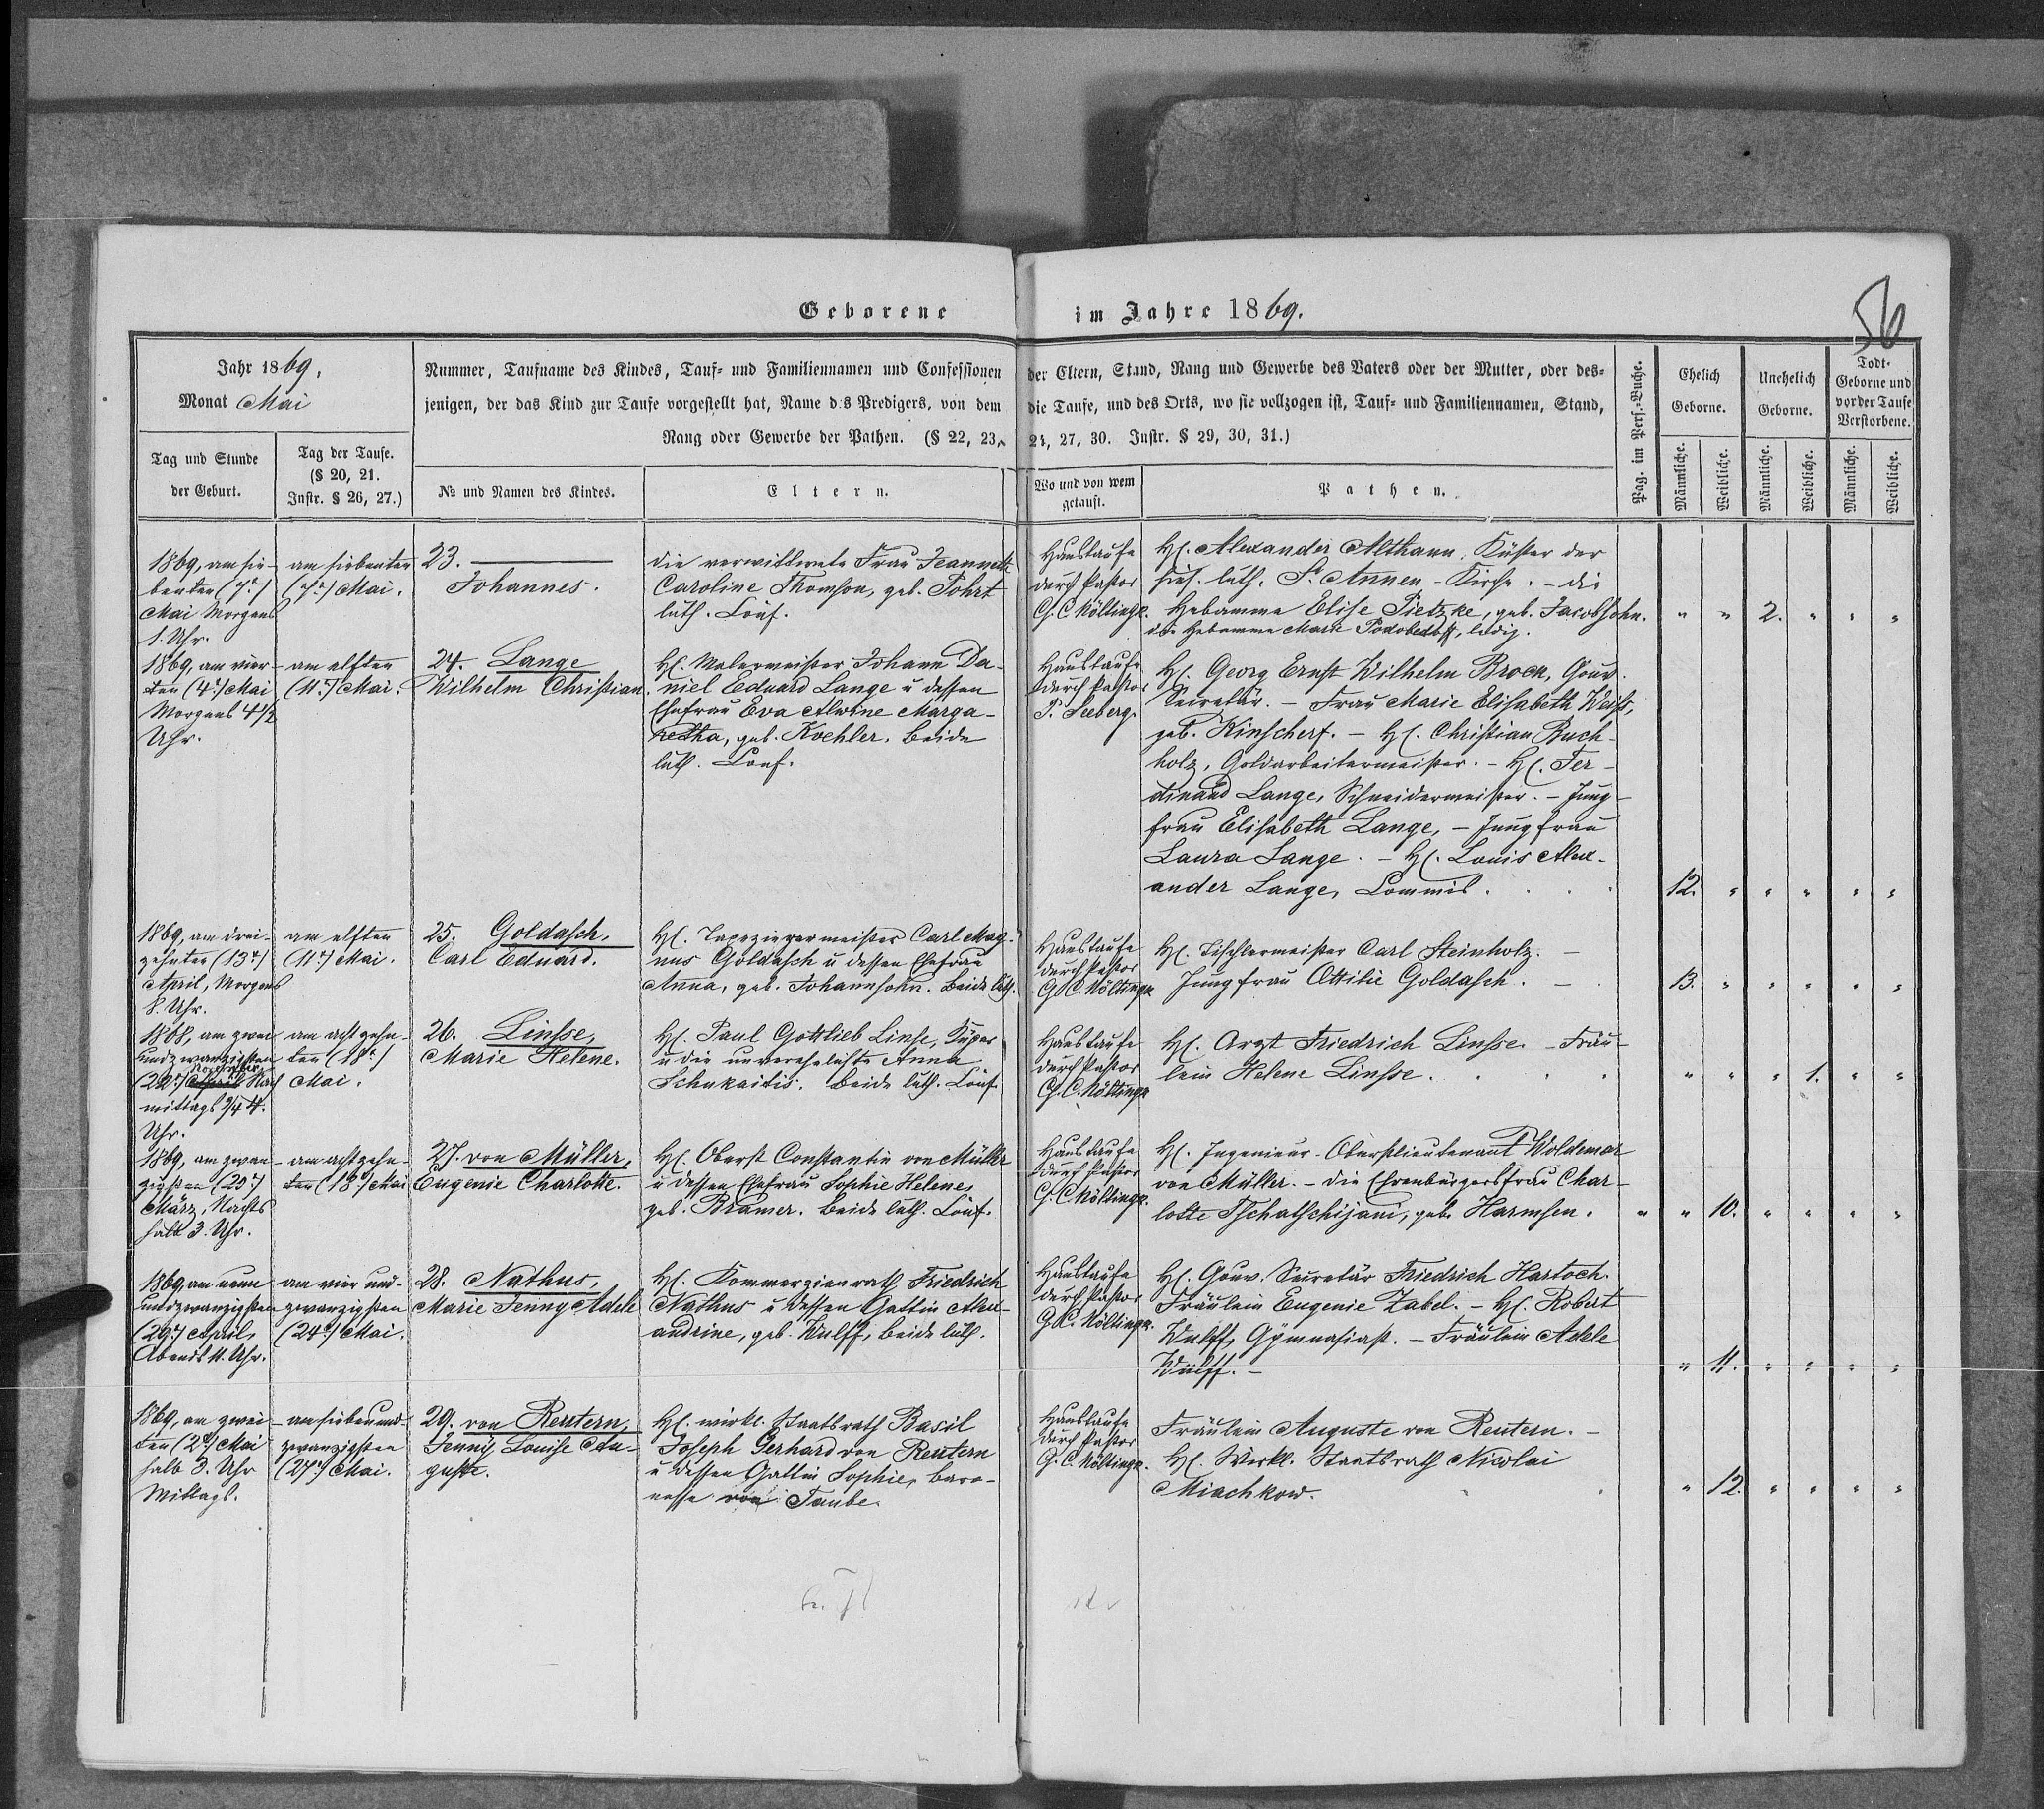 Geborene im Jahre 1869.
56
Jahr 1869.
Monat Mai
Nummer, Taufname des Kindes, Tauf- und Familiennamen und Confessionen der Eltern, Stand, Rang und Gewerbe des Vaters oder der Mutter, oder des-
jenigen, der das Kind zur Taufe vorgestellt hat, Name des Predigers, von dem die Taufe, und des Orts, wo sie vollzogen ist, Tauf- und Familiennamen, Stand,
Rang oder Gewerbe der Pathen. (§ 22, 23, 24, 27, 30. Instr. § 29, 30, 31.)
Tag und Stunde
der Geburt.
Tag der Taufe.
(§ 20, 21.
Instr. § 26, 27.)
№ und Namen des Kindes.
Eltern.
Wo und von wem
getauft.
Pathen.
Pag. im Pers.-Buche.
Ehelich
Geborne.
Unehelich
Geborne.
Todt-
Geborne und
vor der Taufe
Verstorbene.
Männliche.
Weibliche.
Männliche.
Weibliche.
Männliche.
Weibliche.
1869, am sie-
benten (7t)
Mai Morgens
1. Uhr.
am siebenten
(7t) Mai.
23.
Johannes.
die verwittwete Frau Jeannette
Caroline Thomson, geb. Pohrt
luth. Conf.
Haustaufe
durch Pastor
G. C. Nöltingk.
H. Alexander Althann, Küster der
hies. luth. St. Annen-Kirche. - die
Hebamme Elise Pietzke, geb. Jacobsohn.
die Hebamme Marie Podobedoff, ledig.
" " 2. " " "
1869, am vier-
ten (4t) Mai
Morgens 4½
Uhr.
am elften
(11t) Mai.
24. Lange
Wilhelm Christian.
H. Malermeister Johann Da-
niel Eduard Lange u dessen
Ehefrau Eva Alwine Marga-
retha, geb. Koehler. beide
luth. Conf.
Haustaufe
durch Pastor
P. Seeberg.
H. Georg Ernst Wilhelm Brock, Gouv.
Secretär. - Frau Marie Elisabeth Weiss,
geb. Kinscherf. - H. Christian Buch-
holz, Goldarbeitermeister. - H. Fer-
dinand Lange, Schneidermeister. - Jung-
frau Elisabeth Lange, - Jungfrau
Laura Lange. - H. Louis Alex-
ander Lange, Commis.
12. " " " " "
1869, am drei-
zehnten (13t)
April, Morgens
8. Uhr.
am elften
(11t) Mai.
25. Goldasch,
Carl Eduard.
H. Tapezierermeister Carl Mag-
nus Goldasch u dessen Ehefrau
Anna, geb. Johannsohn. beide luth.
Haustaufe
durch Pastor
G. C. Nöltingk
H. Tischlermeister Carl Steinholz. -
Jungfrau Ottilie Goldasch. -
13. " " " " "
1868, am zwei
undzwanzigsten
November
(22t) April Nach
mittags ¾ 4.
Uhr.
am achtzehn-
ten (18t)
Mai.
26. Linsse,
Marie Helene.
H. Paul Gottlieb Linse, Küper
u die unverehelichte Anna
Schukaitis. beide luth. Conf.
Haustaufe
durch Pastor
G. C. Nöltingk
H. Arzt Friedrich Linsse. - Fräu-
lein Helene Linsse.
" " " 1. " "
1869, am zwan-
zigsten (20t)
März, Nachts
halb 3. Uhr.
am achtzehn-
ten (18t) Mai
27. von Müller,
Eugenie Charlotte.
H. Oberst Constantin von Müller
u dessen Ehefrau Sophie Helene,
geb. Bramer. beide luth. Conf.
Haustaufe
durch Pastor
G. C. Nöltingk.
H. Ingenieur-Oberstlieutenant Woldemar
von Müller. - die Ehrenbürgersfrau Char-
lotte Tschatschijani, geb. Harmsen.
" " 10. " " " "
1869, am neun
undzwanzigsten
(29t) April,
Abends 11. Uhr.
am vier und-
zwanzigsten
(24t) Mai.
28. Nathus,
Marie Jenny Adele
H. Kommerzienrath Friedrich
Nathus u dessen Gattin Alex-
andrine, geb. Wulff, beide luth.
Haustaufe
durch Pastor
G. C. Nöltingk.
H. Gouv. Secretär Friedrich Hartoch.
Fräulein Eugenie Zabel. - H. Robert
Wulff, Gymnasiast. - Fräulein Adele
Wulff. -
" 11. " " " "
1869, am zwei-
ten (2t) Mai
halb 3. Uhr
Mittags.
am siebenund-
zwanzigsten
(27t) Mai.
29. von Reutern,
Jenny Louise Au-
guste.
H. wirkl. Staatsrath Basil
Joseph Gerhard von Reutern
u dessen Gattin Sophie, baro-
nesse von Taube.
Haustaufe
durch Pastor
G. C. Nöltingk.
Fräulein Auguste von Reutern. -
H. Wirkl. Staatsrath Nicolai
Miachkow.
" 12. " " " "